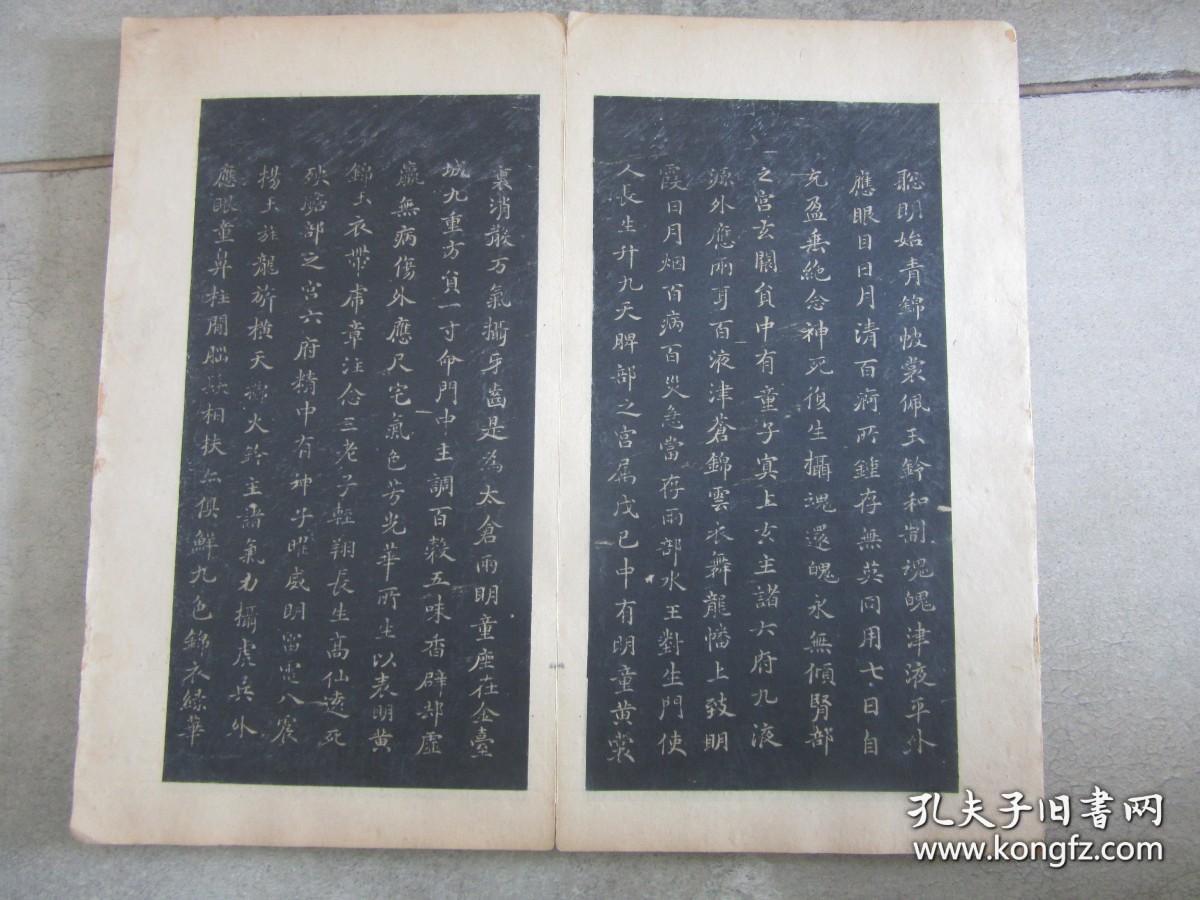 聡明始青錦帔裳佩玉鈴和制魂魄津液平外
應眼目日月清百痾所鍾存無英同用七日自
充盈垂絶念神死復生攝魂還魄永無傾腎部
之宮玄闕貟中有童子㝠上玄主諸六府九液
源外應兩耳百液津蒼錦雲衣舞龍幡上致明
霞日月烟百病百災急當存兩部水王對生門使
人長生升九天脾部之宮属戊巳中有明童黄裳
裏消散万氣攝牙齒是為太倉兩明童座在金臺
城九重方貟一寸命門中主調百穀五味香辟却虚
羸無病傷外應尺宅氣色芳光華所生以表明黄
錦玉衣帶虎章注念三老子輕翔長生髙仙逺死
殃膽部之宮六府精中有神子曜威明雷電八震
揚玉旌龍旂橫天擲火鈴主諸氣力攝虎兵外
應眼童鼻柱間腦髮相扶亦俱鮮九色錦衣緑華
孔夫子旧书网
www.kongfz.com